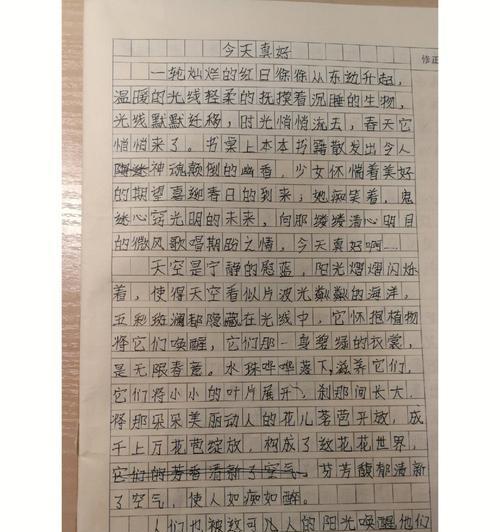 今天真好
修正
一轮灿烂的红日徐徐从东边升起，
温暖的光线轻柔的抚摸着沉睡的生物，
光线默默迁移，时光悄悄流去，春天它
悄悄来了。书桌上本本书籍散发出令人
神魂颠倒的幽香，少女怀惴着美好
的期望喜迎春日的到来；她痴笑着，鬼
迷心窍光明的未来，向那缕缕清心明目
的微风歌唱期盼之情，今天真好啊……
天空是宁静的慰蓝，阳光熠熠闪烁
着，使得天空看似片波光粼粼的海洋，
五彩斑斓都隐藏在光线中，它怀抱植物
将它们唤醒，它们那一身碧绿的衣裳，
是无限春意。水珠哗哗落下，滋养它们，
它们将小小的叶片展开，刹那间长大，
将那朵朵美丽动人的花儿茗苞开放，成
千上万花苞绽放，构成了纹花花世界，
它们的芳香清新了空气，芬芳馥郁清新
了空气，使人如痴如醉。
人们也被这可人的阳光唤醒他们